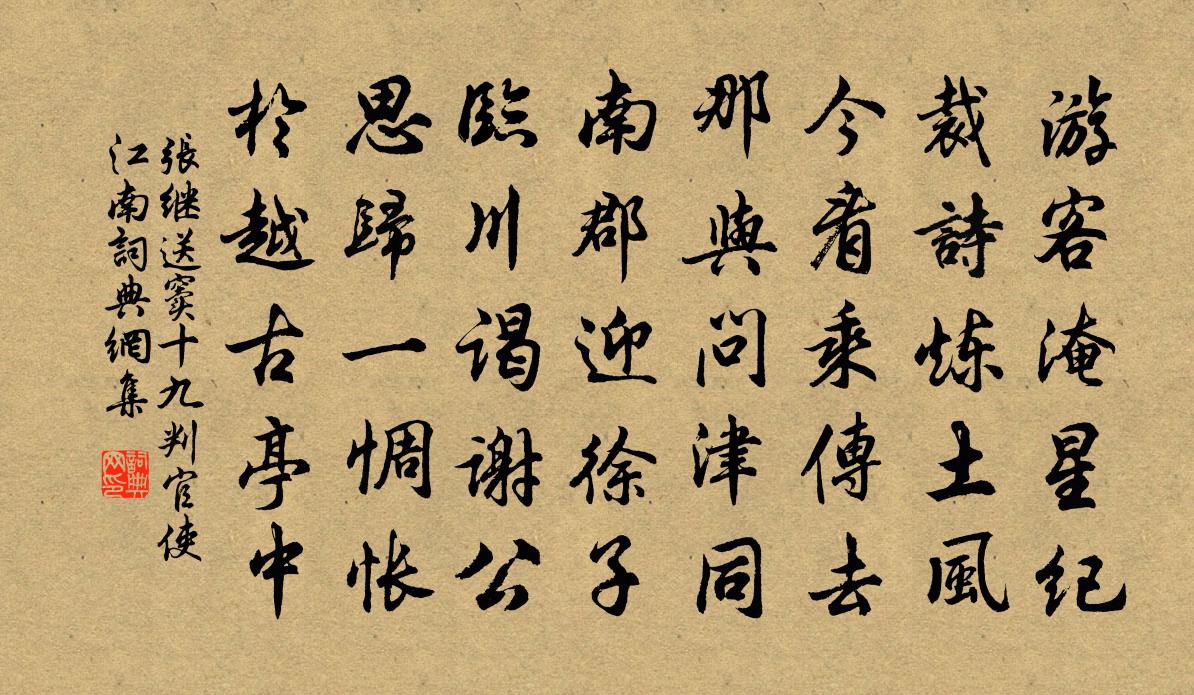 游客淹星纪
裁詩炼土風
今看乘傳去
那與问津同
南郡迎徐子
臨川谒謝公
思歸一惆怅
於越古亭中
張继送窦十九判官使
江南詞典網集
詞典网印